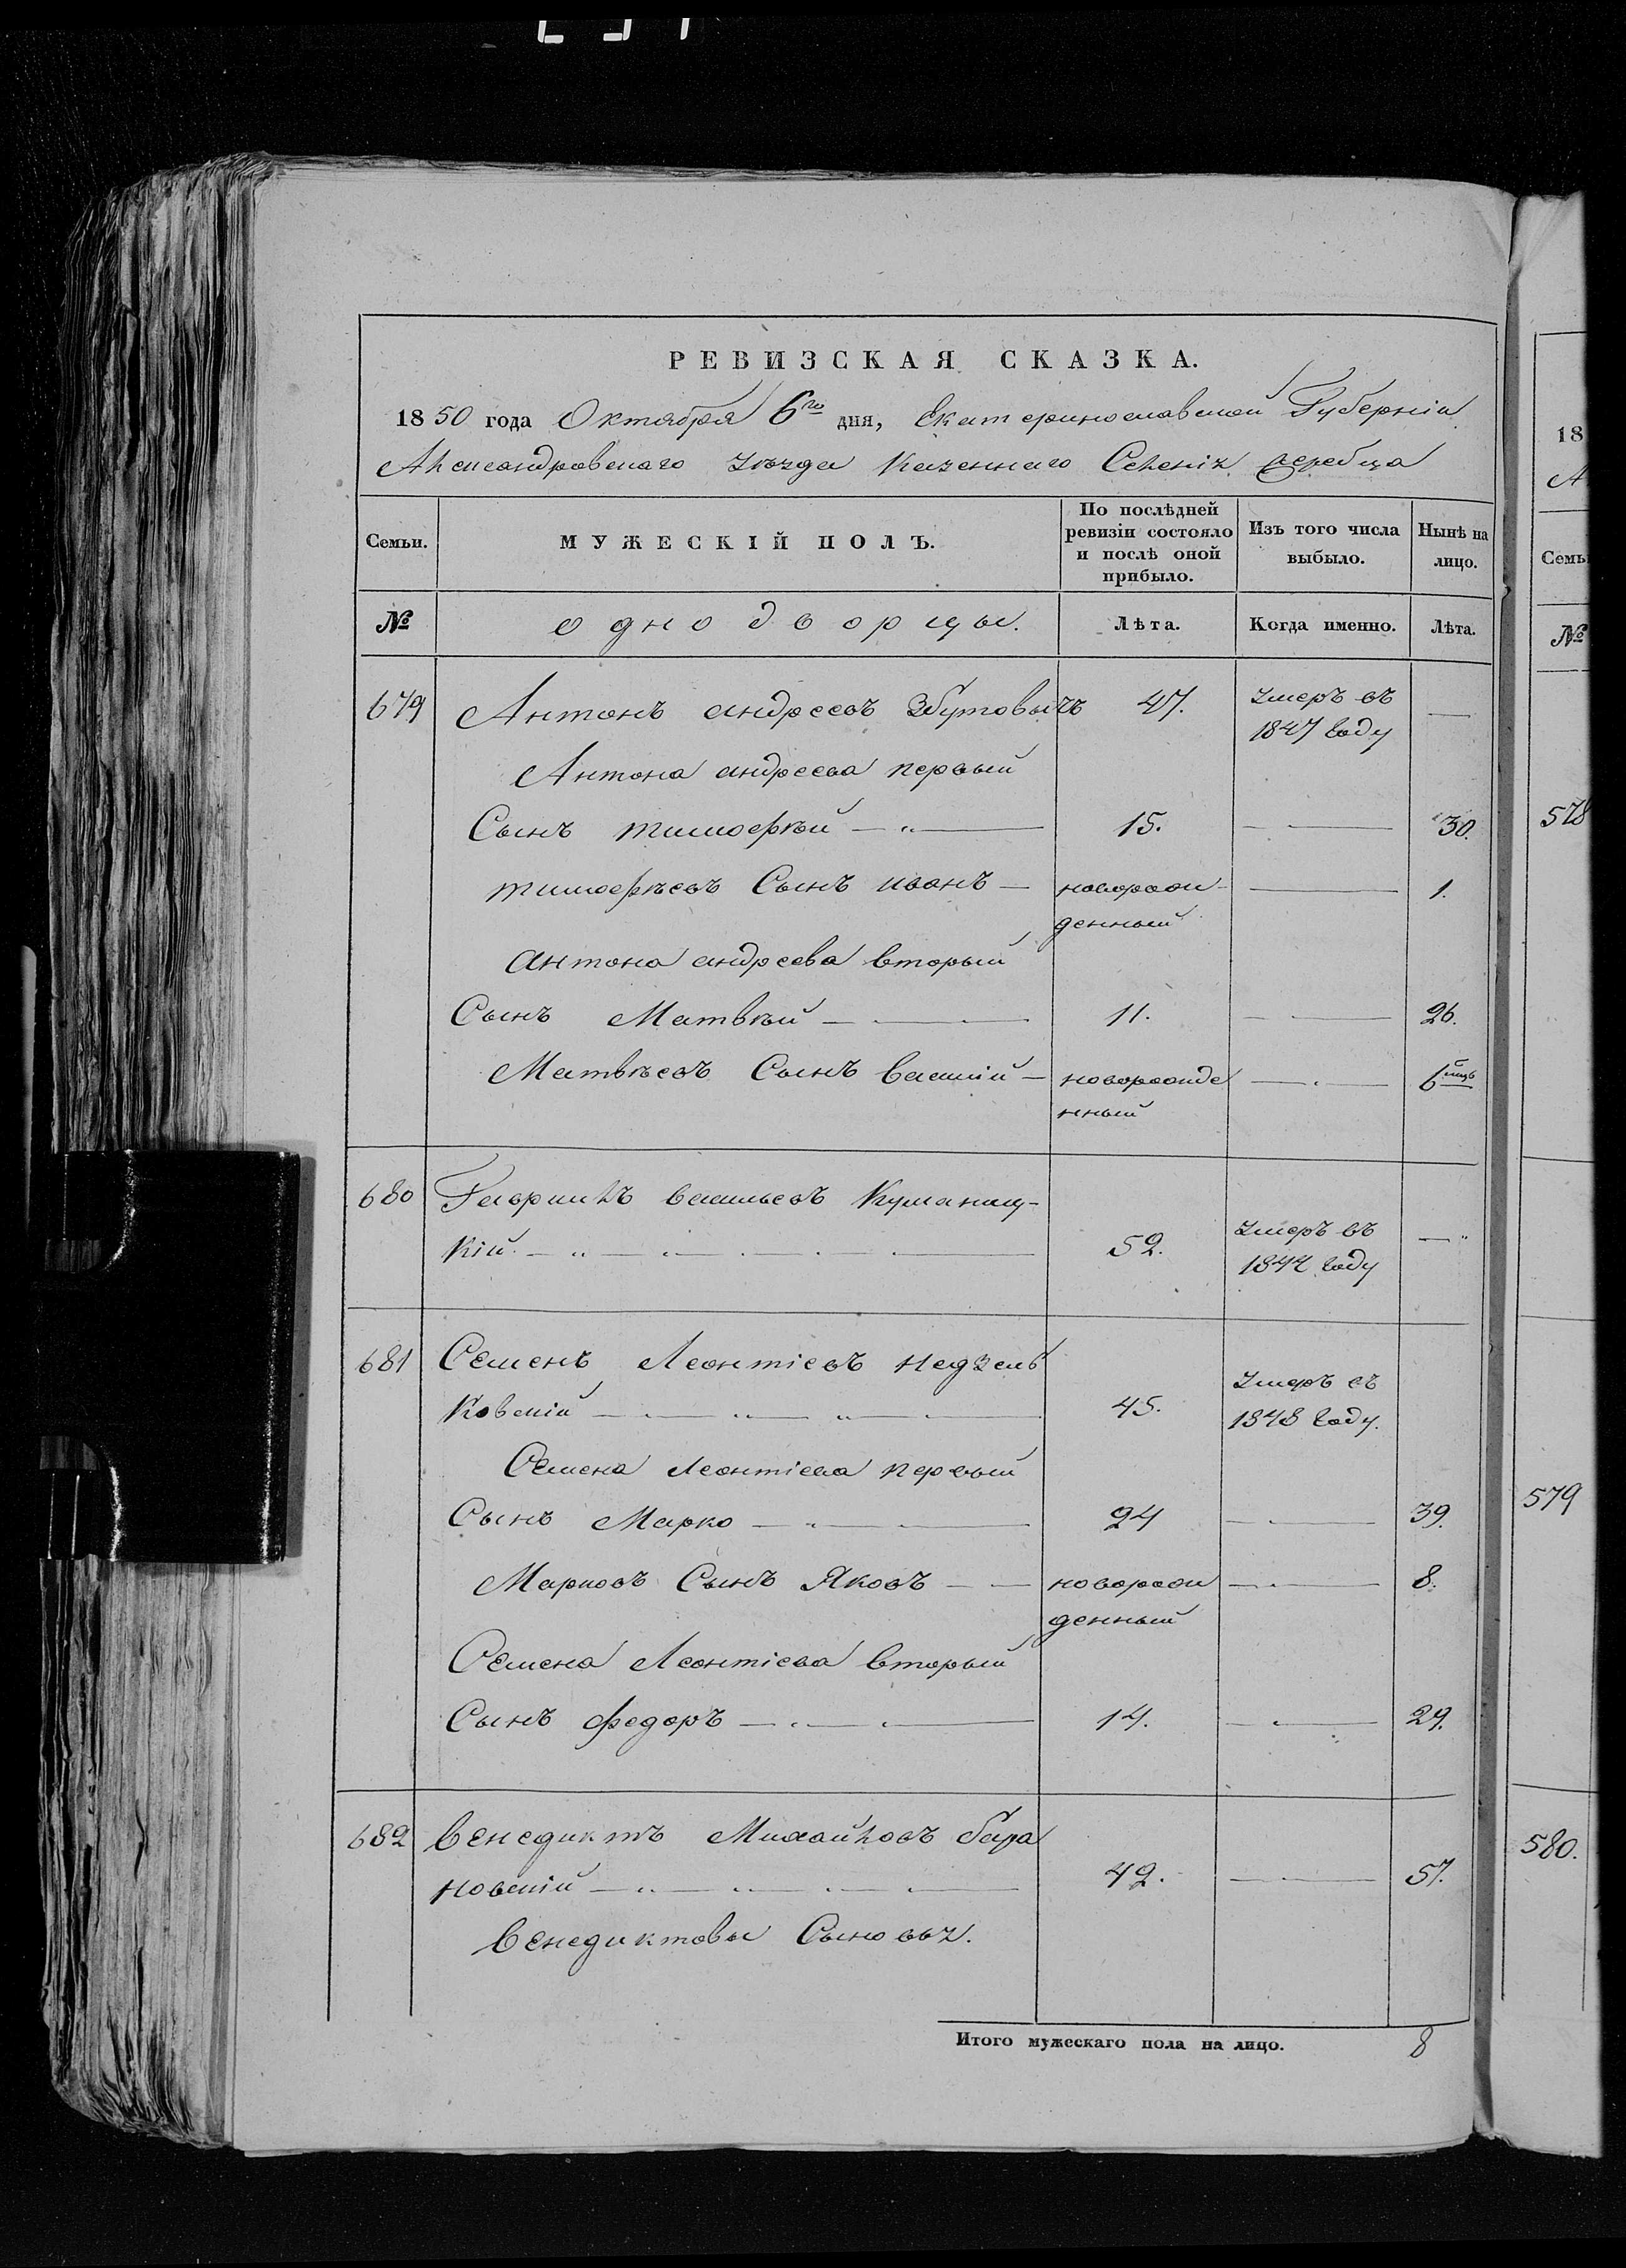 РЕВИЗСКАЯ СКАЗКА.
1850 года Октября 6го дня, Екатеринославской Губерніи
Александровскаго уѣзда Казеннаго Селенія Жеребца
Семьи. МУЖЕСКІЙ ПОЛЪ. По послѣдней ревизіи состояло и послѣ оной прибыло. Изъ того числа выбыло. Нынѣ на лицо.
№ однодворцы. Лѣта. Когда именно. Лѣта.
679 Антонъ андреевъ Збутовычъ 47. умеръ въ 1847 году —
Антона андреева первый
Сынъ тимофѣй — 15. — 30.
тимофѣевъ Сынъ иванъ — новорожденный — 1.
антона андреева вторый
Сынъ Матвѣй — 11. — 26.
Матвѣевъ Сынъ василій — новорожденный — 6 мцъ
680 Гаврилъ васильевъ Куманиц-
кій — 52. умеръ въ 1844 году —
681 Семенъ Леонтіевъ недзель
ковскій — 45. умеръ въ 1848 году.
Семена Леонтіева первый
Сынъ Марко — 24 — 39.
Марковъ Сынъ Яковъ — новорожденный — 8.
Семена Леонтіева вторый
Сынъ федоръ — 14. — 29.
682 Венедиктъ Михайловъ бара
новскій — 42. — 57.
Венедиктовы Сыновья.
Итого мужескаго пола на лицо. 8
18
А
Семь
№
578
579
580.